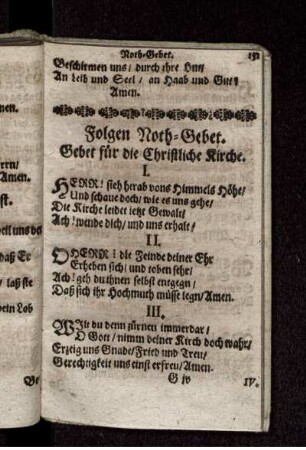 Noth-Gebet. 151
Beschirmen uns/ durch ihre Hut/
An Leib und Seel / an Haab und Gut/
Amen.
Folgen Noth-Gebet.
Gebet für die Christliche Kirche.
I.
HERR! sieh herab vons Himmels Höhe/
Und schaue doch/ wie es uns gehe/
Die Kirche leidet ietzt Gewalt/
Ach! wende dich/ und uns erhalt/
II.
O HERR! die Feinde deiner Ehr
Erheben sich/ und toben sehr/
Ach! geh du ihnen selbst entgegn/
Daß sich ihr Hochmuth müsse legn/Amen.
III.
Wilt du denn zürnen immerdar/
O Gott/ nimm deiner Kirch doch wahr/
Erzeig uns Gnade/ Fried und Treu/
Gerechtigkeit uns einst erfreu/Amen.
G iv IV.
men.
Amen.
daß Er
laß ste
dein Lob